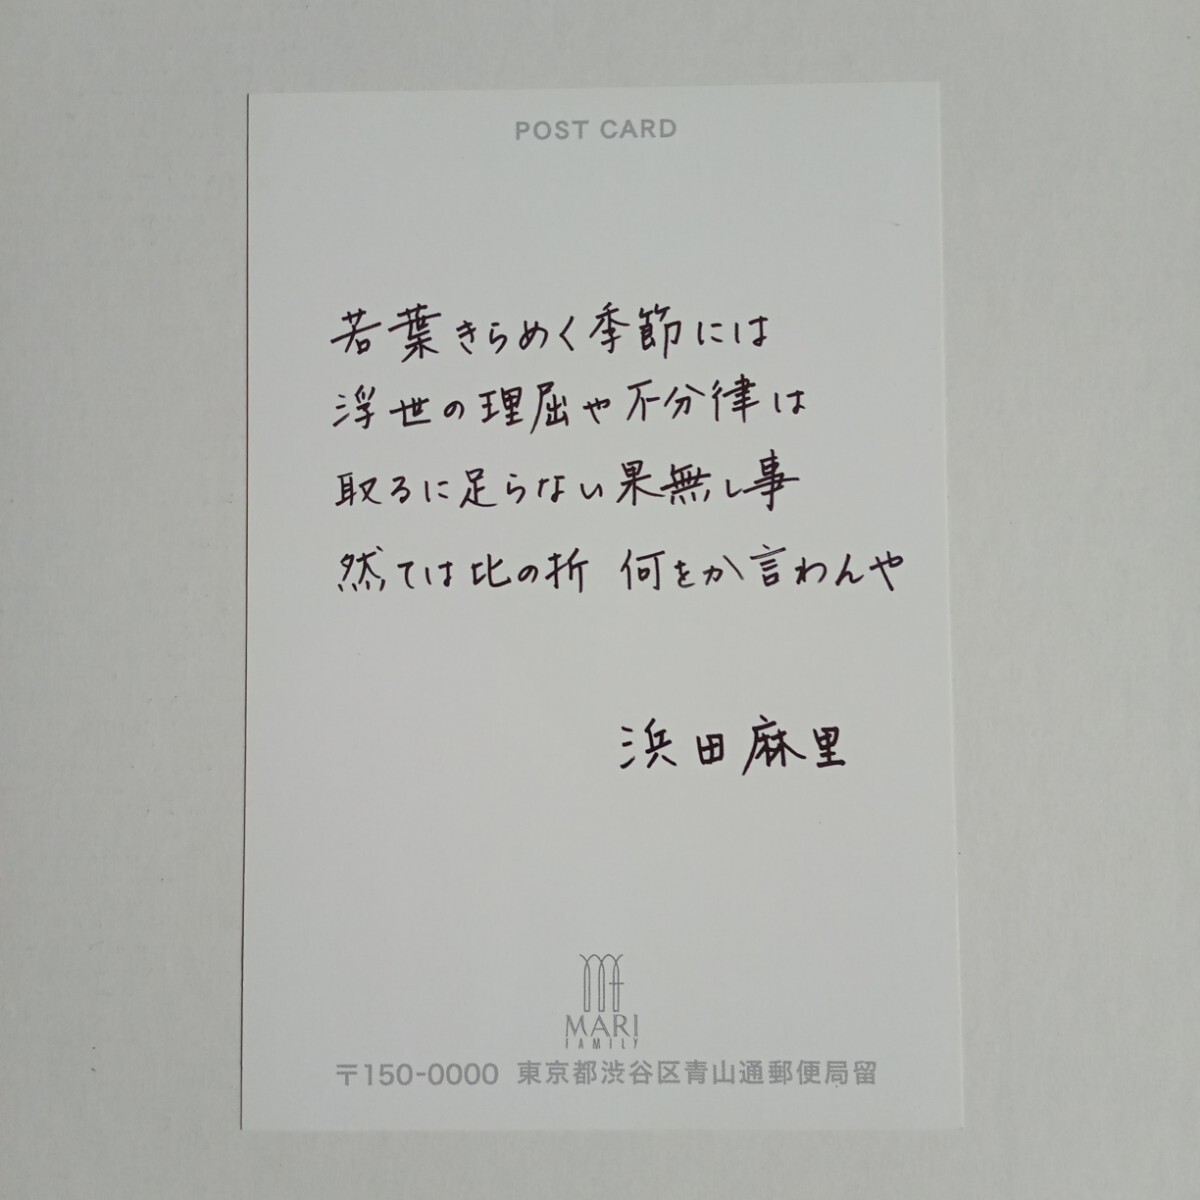 POST CARD
若葉きらめく季節には
浮世の理屈や不分律は
取るに足らない果無し事
然ては比の折 何をか言わんや
浜田麻里
MARI
FAMILY
〒150-0000 東京都渋谷区青山通郵便局留